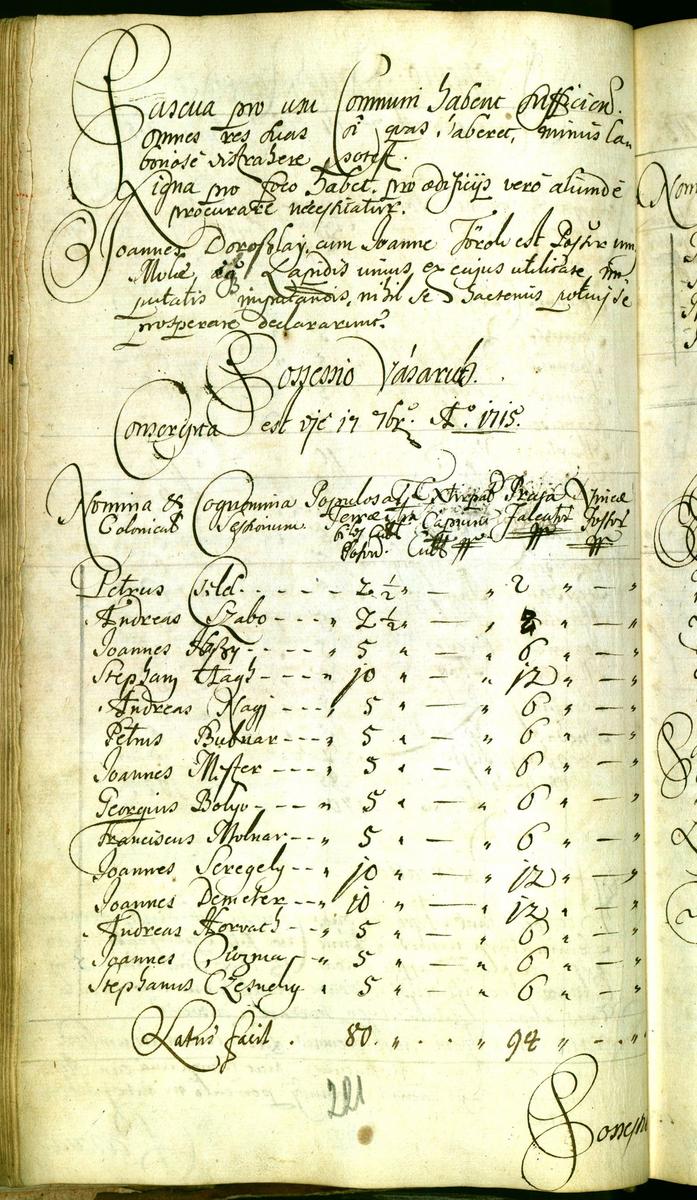 Pascua pro usu Communi habent sufficien.
omnes res suas si quas haberet, minus la
boriosè distrahere potest.
Ligna pro foco habet. pro ædificijs verò aliundè
procurare necessitatur.
Joannes Doroszlay cum Joanne Töröli est Possor unius
Molæ, Lapidis unius, ex cujus utilitate, im
putatis imputandis, nihil se hactenus potuisse
prosperare declararunt.
Possessio Vásarút.
Conscripta est die 17 7br. Aõ. 1715.
Nomina & Cognomina Populosa Extirpat Prata Vineæ
Colonical Sessionum Terræ Capacita Falcat Fossor
Cub Cub
Petrus - - - 2 1/2 " — " 2 " — "
Andreas Szabo - - - " 2 1/2 " — " " — "
Joannes - - - " 5 " — " 6 " — "
Stephan Nagy - - - " 10 " — " 12 " — "
Andreas Nagy - - - " 5 " — " 6 " — "
Petrus Bubnar - - - " 5 " — " 6 " — "
Joannes Mester - - - " 5 " — " 6 " — "
Georgius Bolyo - - - " 5 " — " 6 " — "
Franciscus Molnar - - " 5 " — " 6 " — "
Joannes Seregely - - " 10 " — " 12 " — "
Joannes Demeter - - " 10 " — " 12 " — "
Andreas Horvath - - " 5 " — " 6 " — "
Joannes Csizma - " 5 " — " 6 " — "
Stephanus " 5 " — " 6 " — "
Latus facit . 80. " . . " 94 " - . "
221